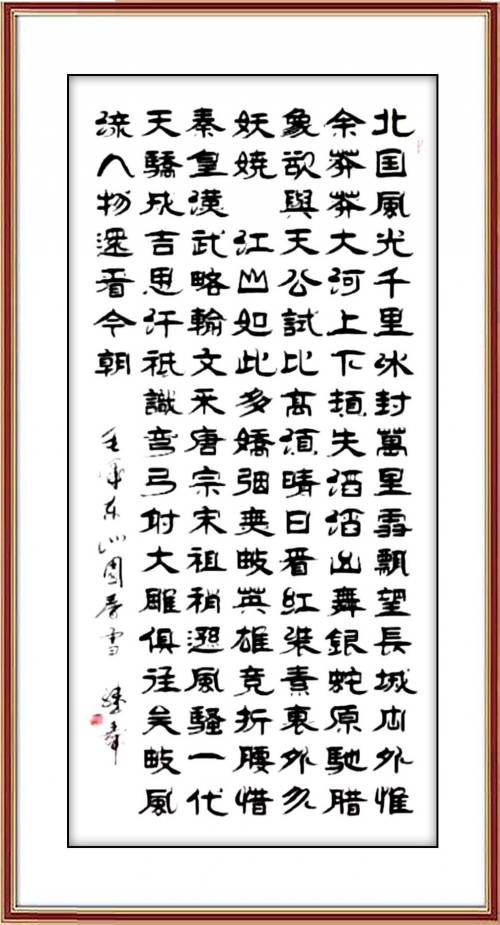 北国風光千里冰封萬里雪飄望長城内外惟
余莽莽大河上下頓失滔滔山舞銀蛇原馳腊
象欲與天公試比高須晴日看紅裝素裹外分
妖嬈 江山如此多嬌引無數英雄竞折腰惜
秦皇漢武略輸文采唐宗宋祖稍遜風騷一代
天驕成吉思汗祗識彎弓射大雕俱往矣數風
流人物還看今朝
毛澤东沁園春雪